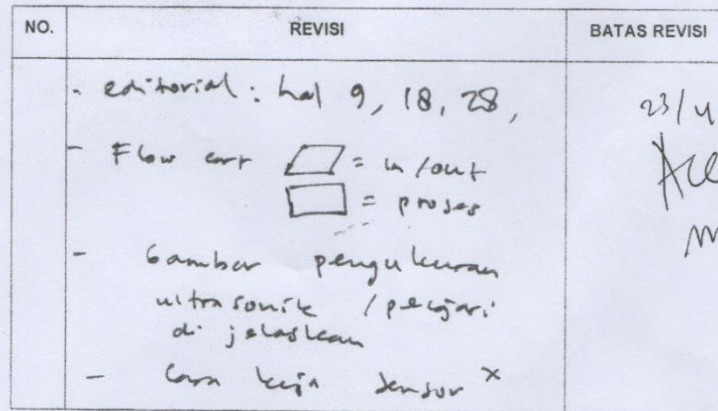 NO. REVISI BATAS REVISI
- editorial : hal 9, 18, 28,
23/4
- Flow cart = in/out
= proses
Acc
- Gambar pengukuran
ultrasonik / pelajari
di jelaskan
- Cara kerja sensor x